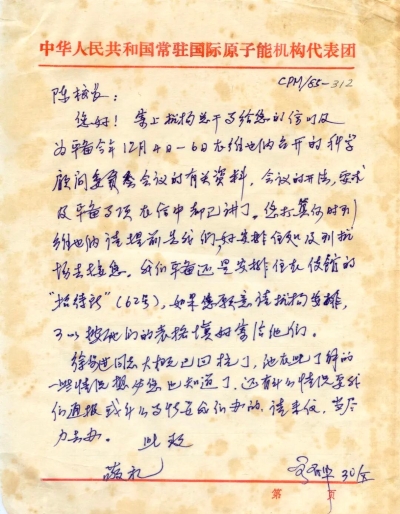 中华人民共和国常驻国际原子能机构代表团
CPM/85-312
陈校长：
您好！寄上机构总干事给您的信以及
为准备今年12月4日-6日在维也纳召开的科学
顾问委员会会议的有关资料。会议的开法，要求
及准备事项在信中都已讲了。您打算何时到
维也纳请提前告我们，好安排住处及到机
场去接您。我们准备还是安排住在使馆的
"招待所"（62号），如果您愿意请机构安排，
可以按他们的表格填好寄给他们。
同志大概已回校了，他在此了解的
一些情况您也知道了，还有什么情况要我
们通报或什么事情要我们办的，请来信，当尽
力去办。 此致
敬礼
30/8
第 页